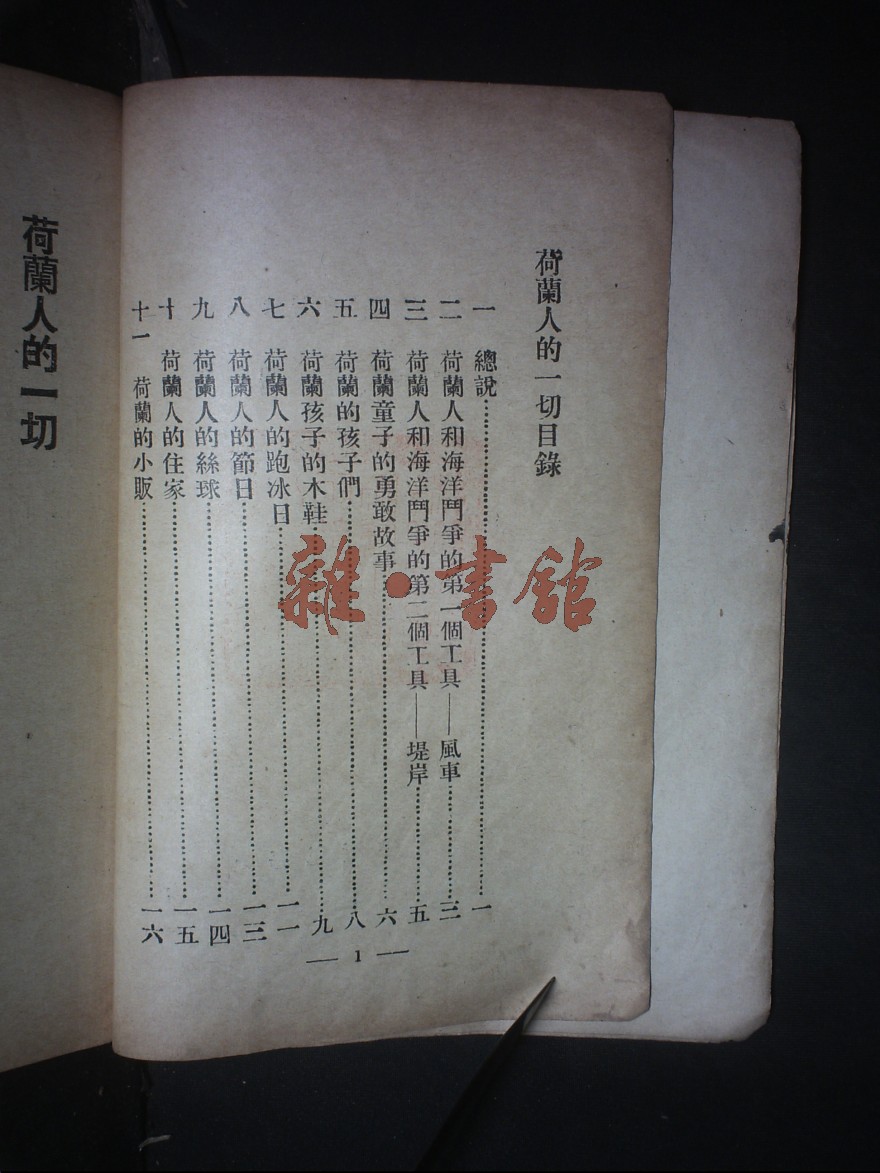 荷蘭人的一切目錄
一 總說……一
二 荷蘭人和海洋鬥爭的第一個工具——風車……三
三 荷蘭人和海洋鬥爭的第二個工具——堤岸……五
四 荷蘭童子的勇敢故事……六
五 荷蘭的孩子們……八
六 荷蘭孩子的木鞋……九
七 荷蘭人的跑冰日……一一
八 荷蘭人的節日……一三
九 荷蘭人的絲球……一四
十 荷蘭人的住家……一五
十一 荷蘭的小販……一六
— 1 —
荷蘭人的一切
雜·書館